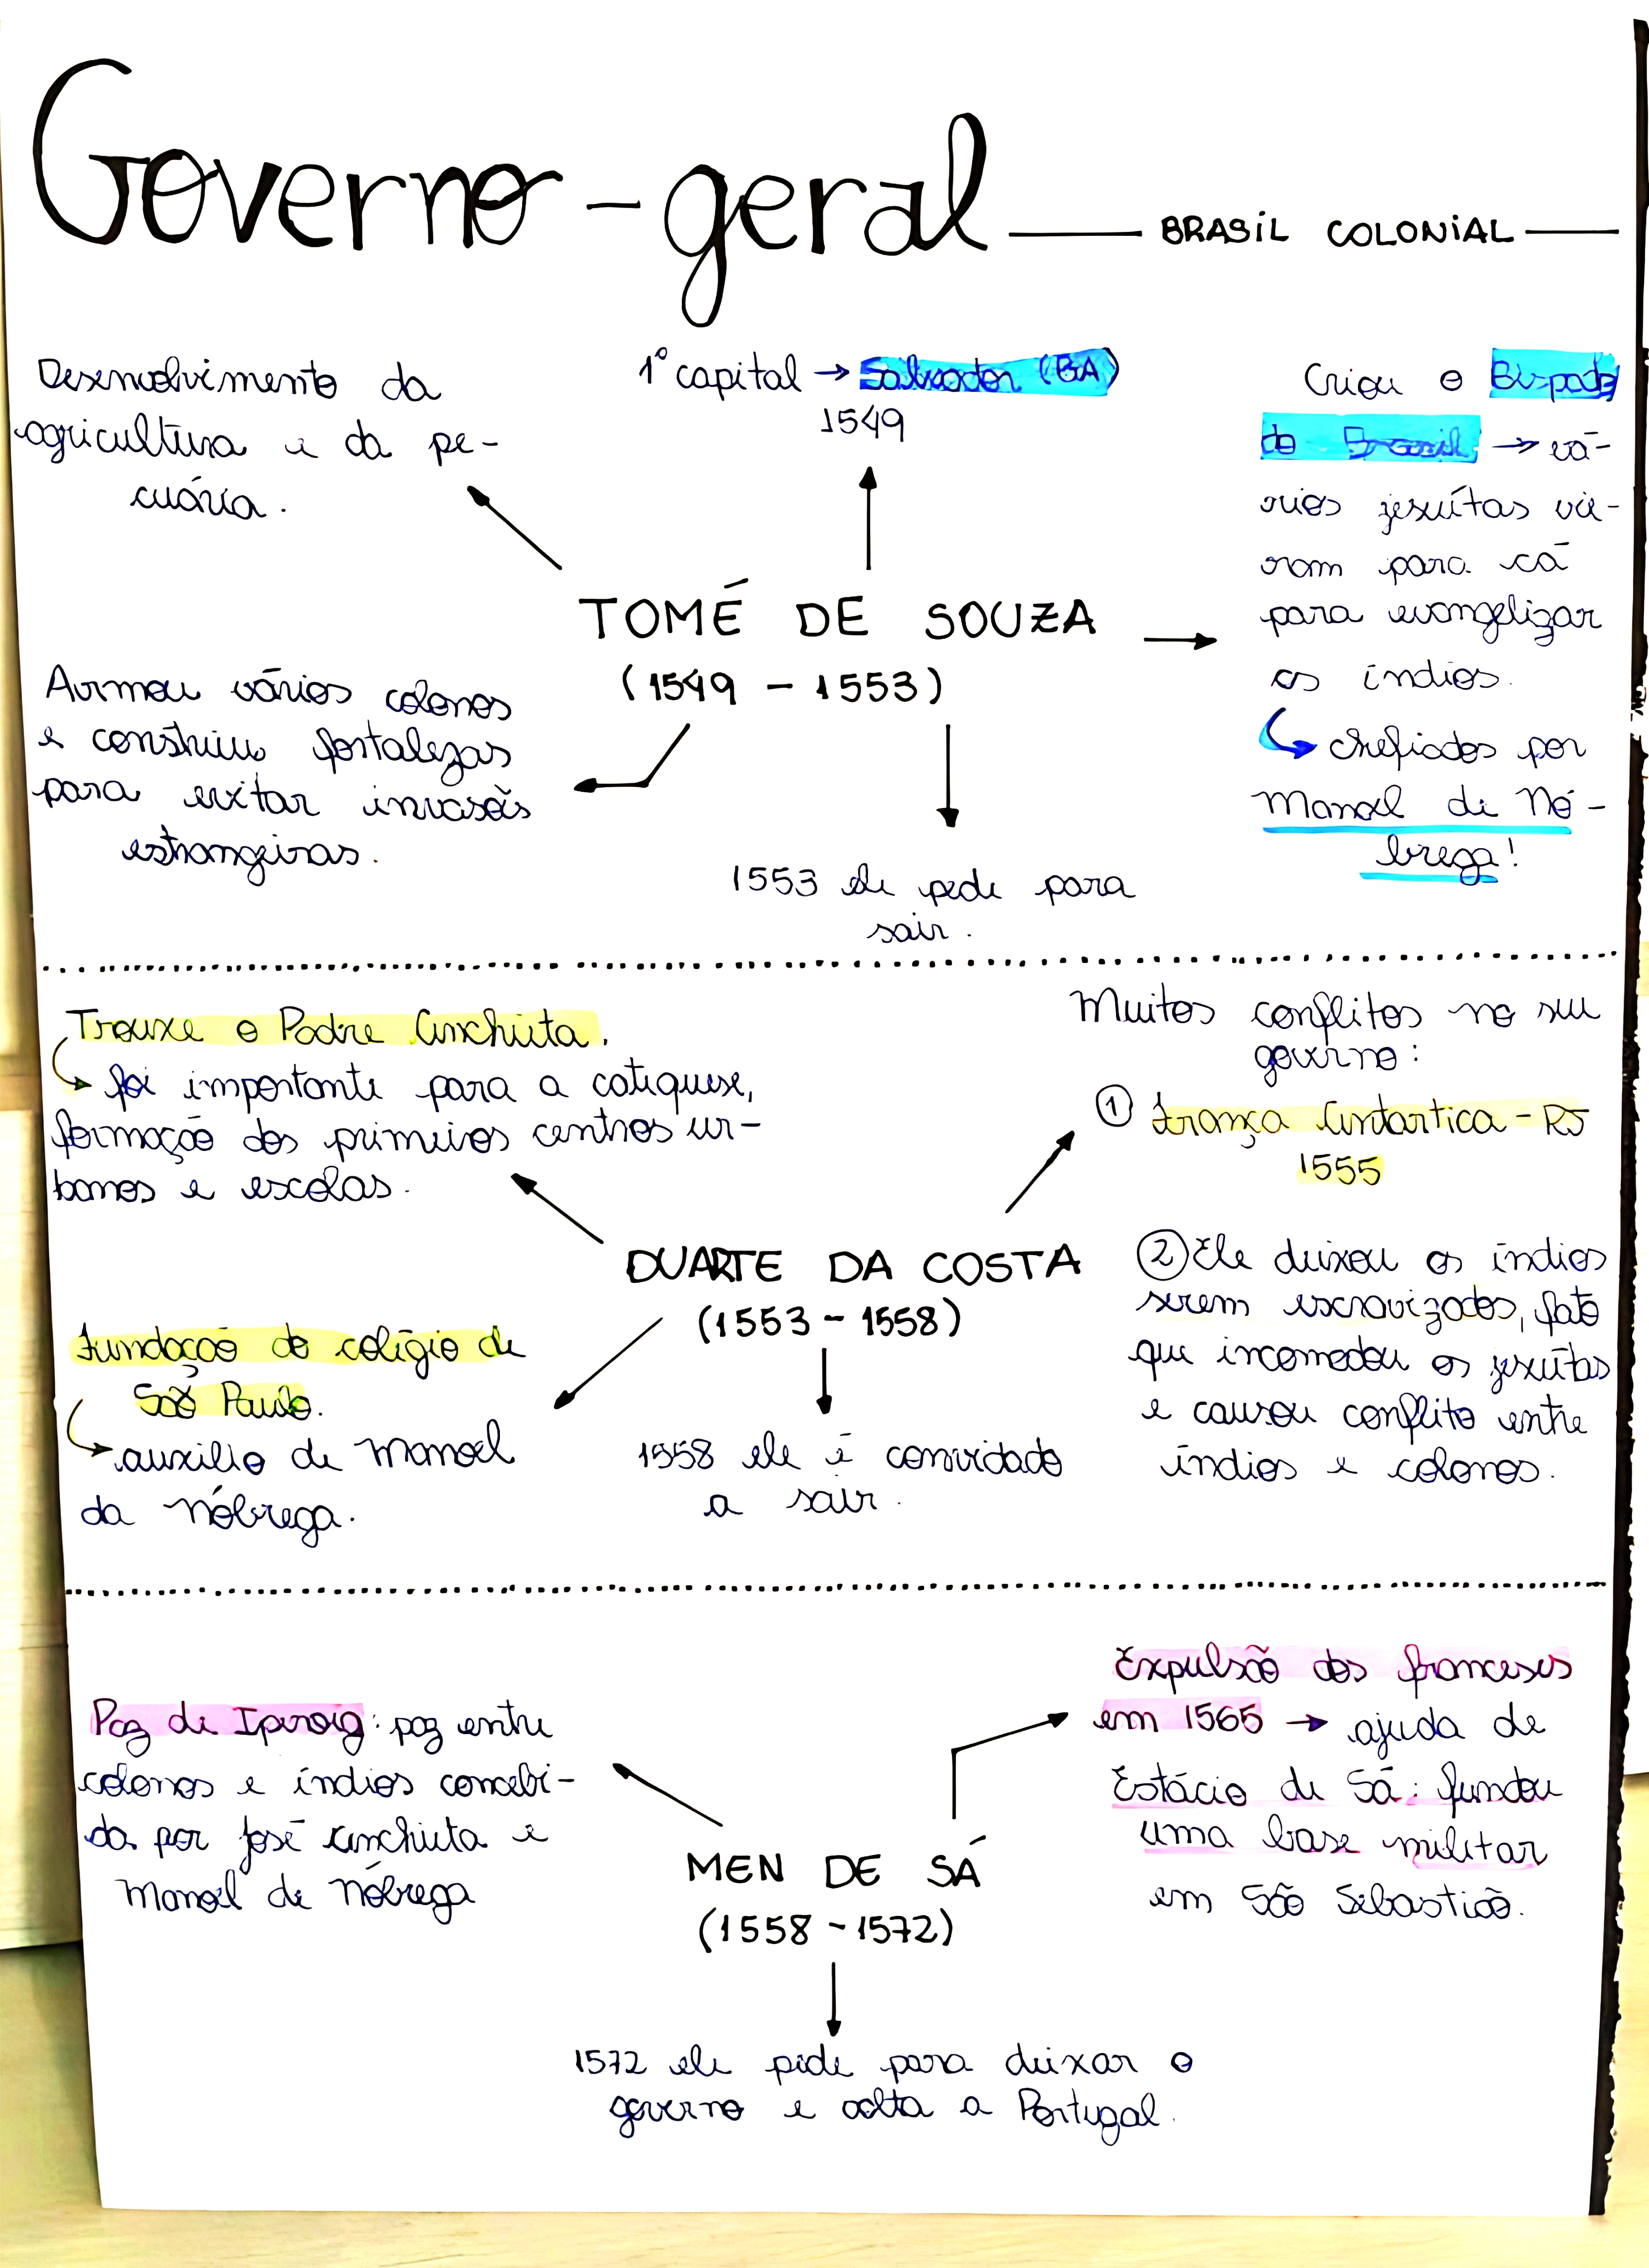 Governo-geral — BRASIL COLONIAL —
Desenvolvimento da
agricultura e da pe-
cuária.
1º capital → Salvador (BA)
1549
Criou o Bispado
do Brasil → vá-
rios jesuítas vie-
ram para cá
para evangelizar
os índios.
chefiados por
Manoel de Nó-
brega!
TOMÉ DE SOUZA
(1549 - 1553)
Armou vários colonos
e construiu fortalezas
para evitar invasões
estrangeiras.
1553 ele pede para
sair.
Trouxe o Padre Anchieta.
foi importante para a catequese,
formação dos primeiros centros ur-
banos e escolas.
Muitos conflitos no seu
governo:
① França Antartica - RJ
1555
② Ele deixou os índios
serem escravizados, fato
que incomodou os jesuítas
e causou conflito entre
índios e colonos.
DUARTE DA COSTA
(1553 - 1558)
Fundação do colégio de
São Paulo.
auxilio de Manoel
da Nóbrega.
1558 ele é convidado
a sair.
Paz de Iperoig: paz entre
colonos e índios concebi-
da por José Anchieta e
Manoel de Nóbrega
Expulsão dos franceses
em 1565 → ajuda de
Estácio de Sá: fundou
uma base militar
em São Sebastião.
MEN DE SÁ
(1558 - 1572)
1572 ele pede para deixar o
governo e volta a Portugal.